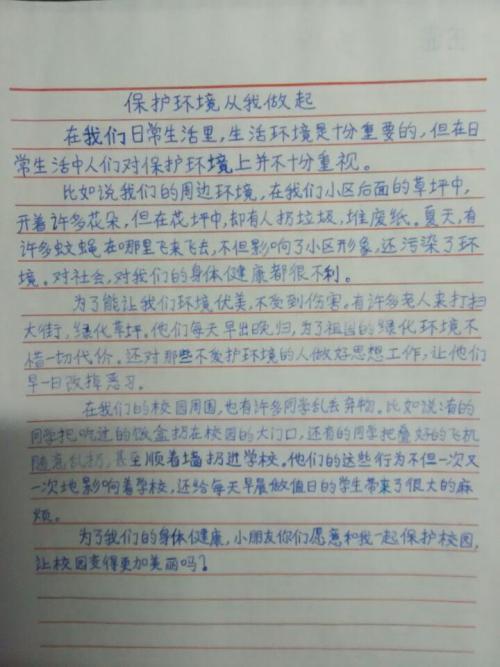 保护环境从我做起
在我们日常生活里,生活环境是十分重要的,但在日
常生活中人们对保护环境上并不十分重视。
比如说我们的周边环境,在我们小区后面的草坪中,
开着许多花朵,但在花坪中,却有人扔垃圾,堆废纸。夏天,有
许多蚊蝇在哪里飞来飞去,不但影响了小区形象,还污染了环
境。对社会,对我们的身体健康都很不利。
为了能让我们环境优美,不受到伤害。有许多老人来打扫
大街,绿化草坪。他们每天早出晚归,为了祖国的绿化环境不
惜一切代价。还对那些不爱护环境的人做好思想工作,让他们
早一日改掉恶习。
在我们的校园周围,也有许多同学乱丢弃物。比如说:有的
同学把吃过的饭盒扔在校园的大门口,还有的同学把叠好的飞机
随意乱扔,甚至顺着墙扔进学校。他们的这些行为不但一次又
一次地影响着学校,还给每天早晨做值日的学生带来了很大的麻
烦。
为了我们的身体健康,小朋友你们愿意和我一起保护校园,
让校园变得更加美丽吗?